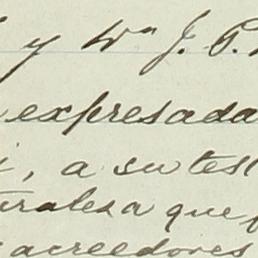 y Wm J. P.
expresada
, a su test
turaleza que
acreedores